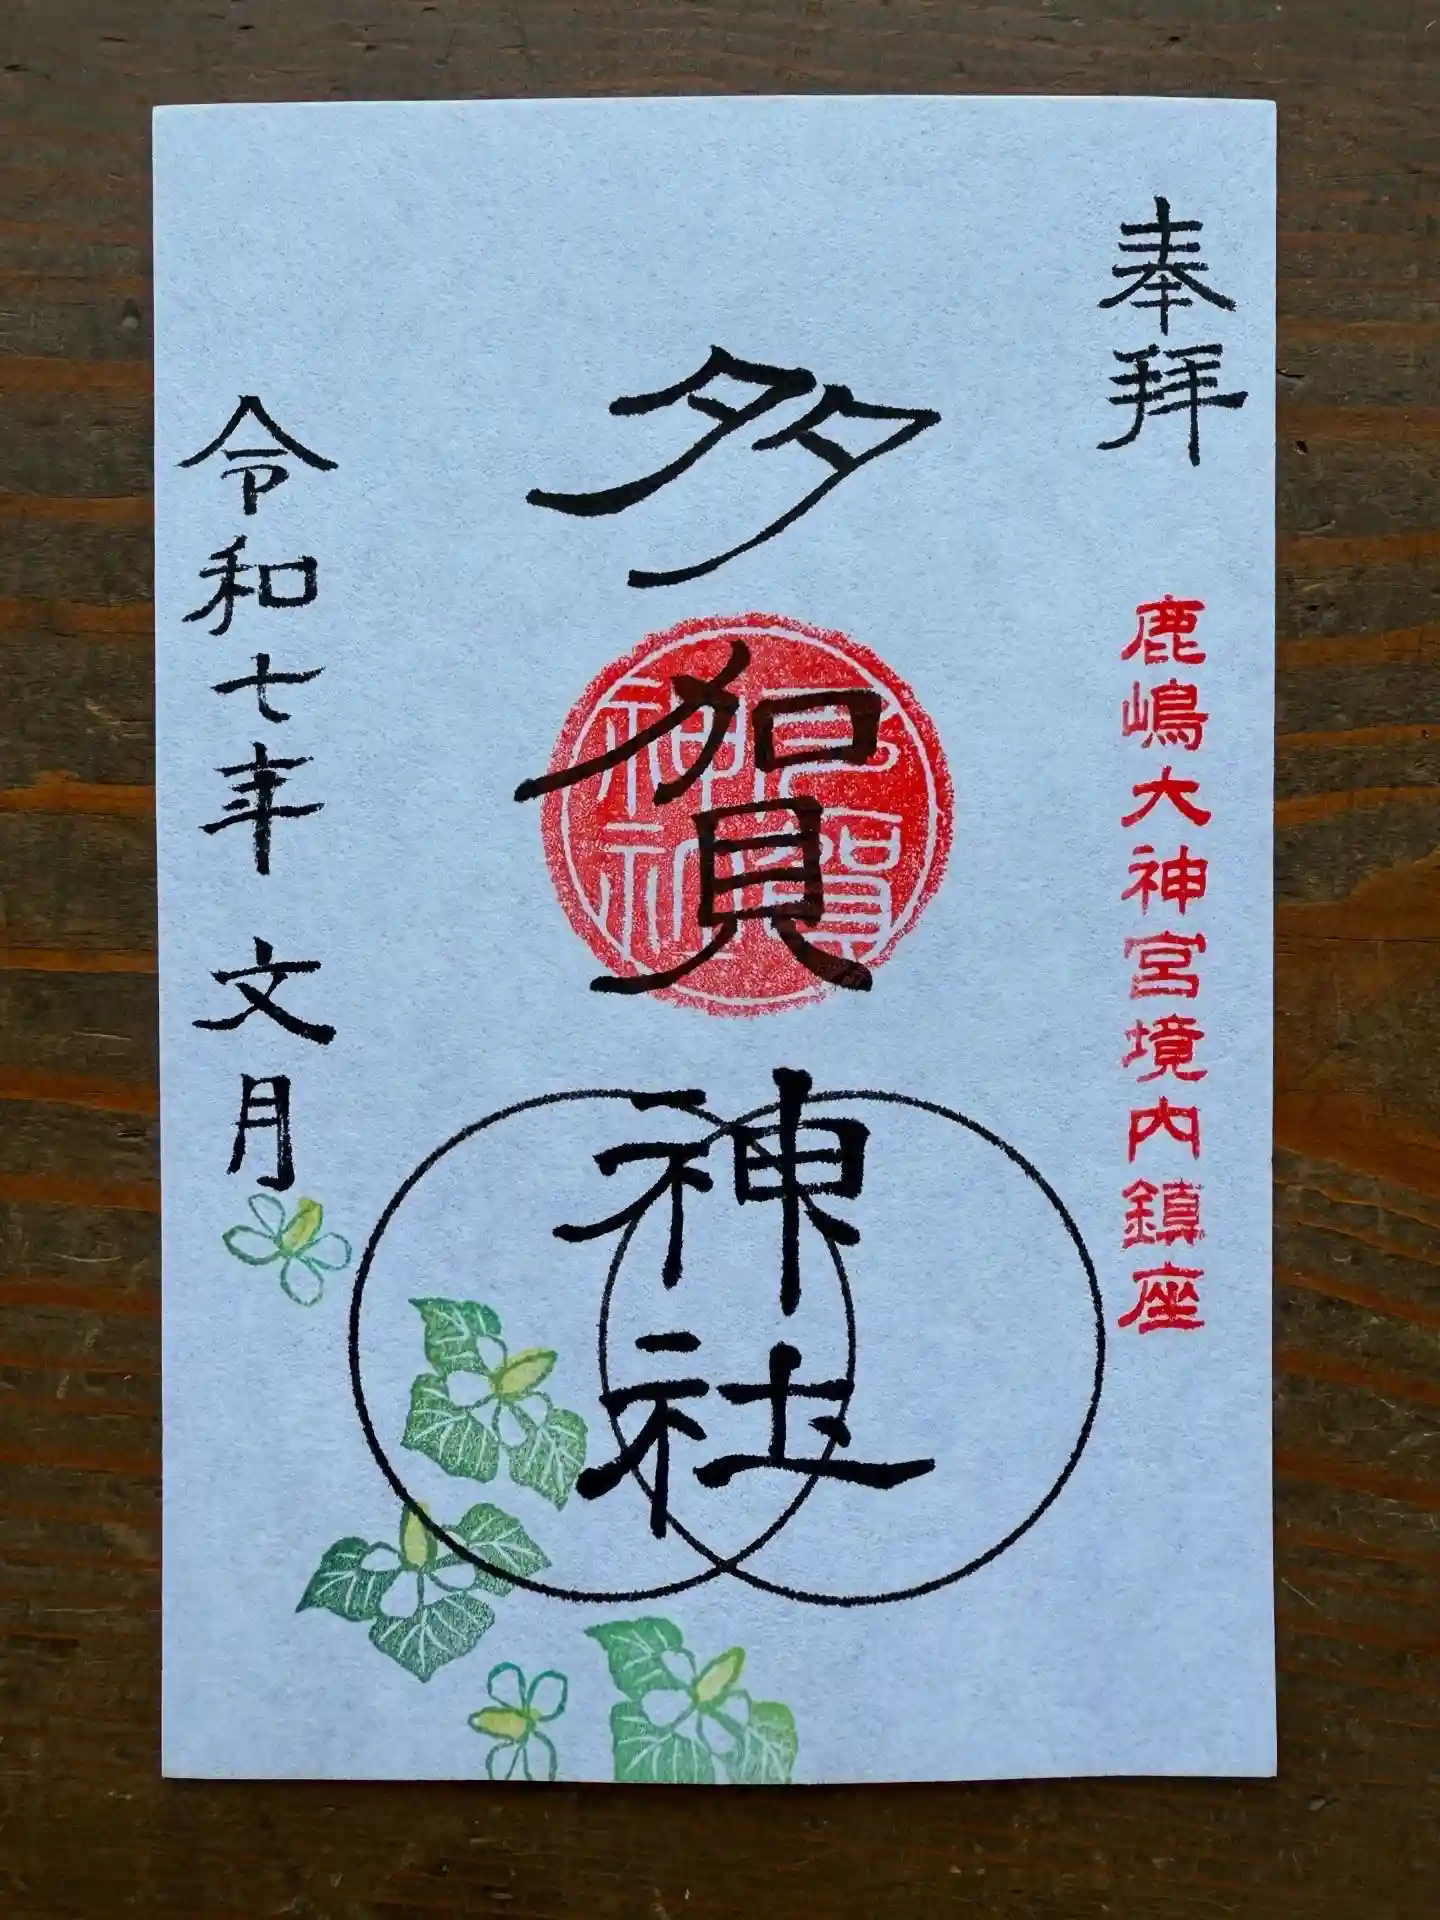 奉拝
鹿嶋大神宮境内鎮座
多賀神社
多賀神社
令和七年 文月